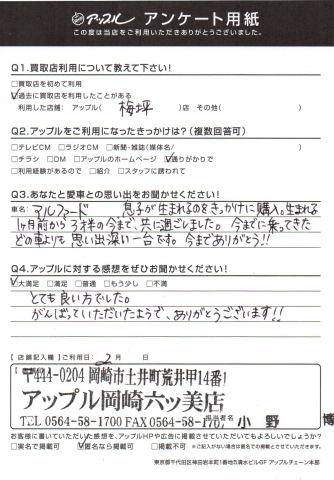 アップル アンケート用紙
この度は当店をご利用いただきありがとうございました。
Q1.買取店利用について教えて下さい!
□買取店を初めて利用
☑過去に買取店を利用したことがある
利用した店舗: アップル( 梅坪 )店 その他( )
Q2.アップルをご利用になったきっかけは?(複数回答可)
□テレビCM □ラジオCM □新聞・雑誌(媒体名/ )
□チラシ □DM □アップルのホームページ ☑通りがかりで
□利用経験があるので □紹介 □スタッフに誘われて
Q3.あなたと愛車との思い出をお聞かせください!
車名: アルファード 息子が生まれるのをきっかけに購入。生まれる
1ヶ月前から3才半の今まで、共に過ごしました。今までに乗ってきた
どの車よりも思い出深い一台です。今までありがとう!!
Q4.アップルに対する感想をぜひお聞かせください!
☑大満足 □満足 □普通 □もう少し □不満
とても良い方でした。
がんばっていただいたようで、ありがとうございます!!
【店舗記入欄】ご利用日: 2月 日
〒444-0204 岡崎市土井町荒井甲14番1
アップル岡崎六ッ美店
TEL 0564-58-1700 FAX 0564-58-1707 担当者名 小野 博
お客様に書いていただいた感想を、アップルHPや広告に掲載させていただいてもよろしいでしょうか?
□実名で掲載可 ☑匿名なら掲載可 □掲載不可
東京都千代田区神田岩本町1番地5清水ビル6F アップルチェーン本部